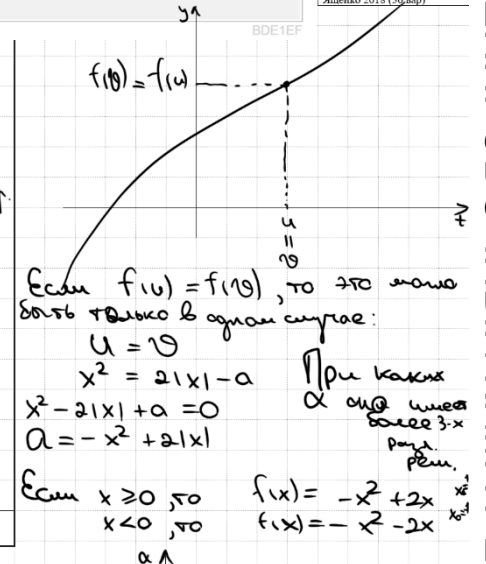 Ященко 2018 (36 вар)
y
BDE1EF
f(v) = f(u)
t
u
=
v
Если f(u) = f(v), то это может
быть только в одном случае:
u = v
x² = 2|x| - a
x² - 2|x| + a = 0
a = - x² + 2|x|
При каких
a оно имеет
более 3-х
разл.
реш.
Если x ≥ 0, то f(x) = - x² + 2x
x < 0, то f(x) = - x² - 2x
a